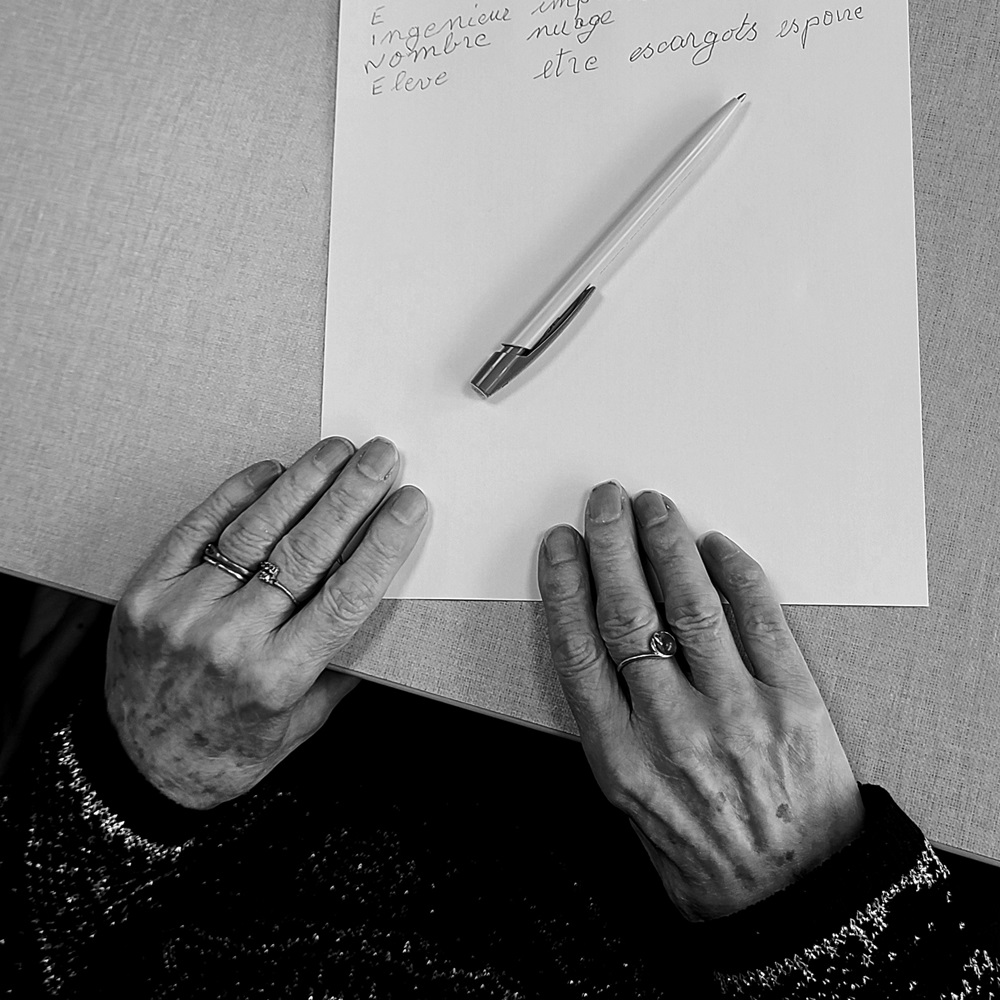 E
Ingenieur imp
Nombre nuage
Eleve etre escargots espoire